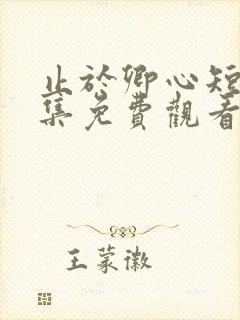 止於卿心短
集免費觀看
王蒙徽